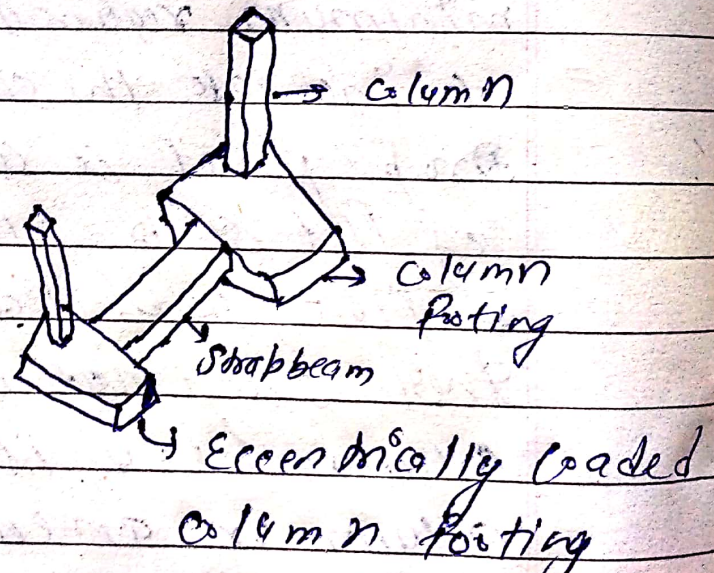 Column
Column
Footing
Strap beam
Eccentrically loaded
Column footing